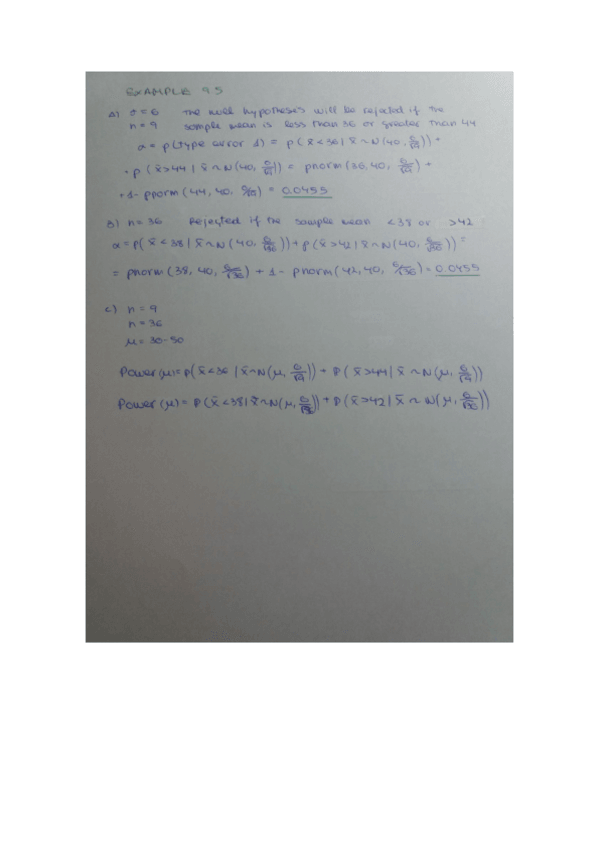 EXAMPLE 9.5
a) σ=6 The null hypothesis will be rejected if the
n=9 sample mean is less than 36 or greater than 44
α = p(type error 1) = p(x̄<36 | x̄~N(40, 6/√9)) +
+ p(x̄>44 | x̄~N(40, 6/√9)) = pnorm(36,40, 6/√9) +
+1- pnorm(44, 40, 6/√9) = 0.0455
b) n=36 Rejected if the sample mean <38 or >42
α=p(x̄<38 | x̄~N(40, 6/√36))+p(x̄>42 | x̄~N(40, 6/√36)) =
= pnorm(38, 40, 6/√36) + 1- pnorm(42,40, 6/√36) = 0.0455
c) n=9
n=36
μ=30-50
Power(μ)=p(x̄<36 | x̄~N(μ, 6/√9)) + P(x̄>44 | x̄~N(μ, 6/√9))
Power(μ)= P(x̄<38 | x̄~N(μ, 6/√36)) + P(x̄>42 | x̄~N(μ, 6/√36))